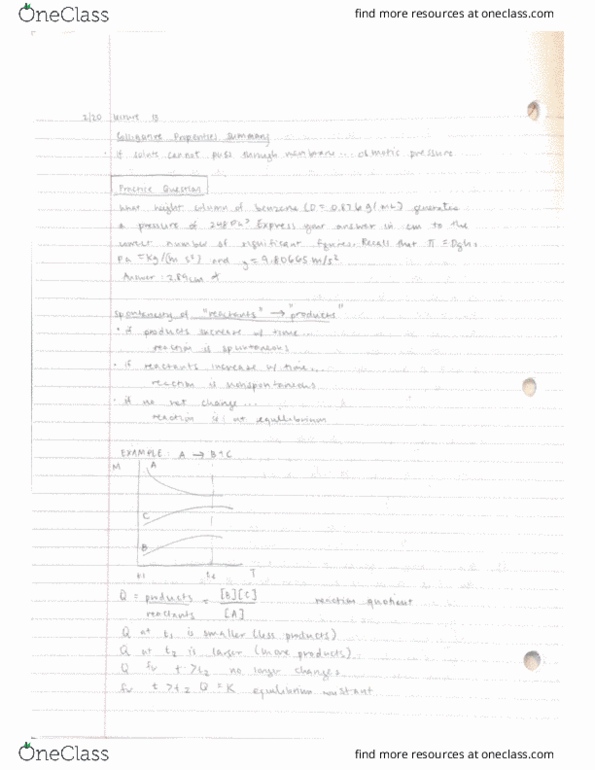 OneClass
find more resources at oneclass.com
2/20 Lecture 13
Colligative Properties Summary
· if solute cannot pass through membrane... osmotic pressure
Practice Question
What height column of benzene (D = 0.876 g/mL) generates
a pressure of 248 Pa? Express your answer in cm to the
correct number of significant figures. Recall that π = Dgh,
Pa = Kg/(m s²) and g = 9.80665 m/s²
Answer: 2.89 cm
Spontaneity of "reactants" → "products"
· if products increase w/ time...
reaction is spontaneous
· if reactants increase w/ time...
reaction is nonspontaneous
· if no net change...
reaction is at equilibrium
EXAMPLE: A → B+C
M A
C
B
t1 t2 T
Q = products = [B][C] reaction quotient
reactants [A]
Q at t1 is smaller (less products)
Q at t2 is larger (more products)
Q for t > t2 no longer changes
for t > t2 Q = K equilibrium constant
OneClass
find more resources at oneclass.com